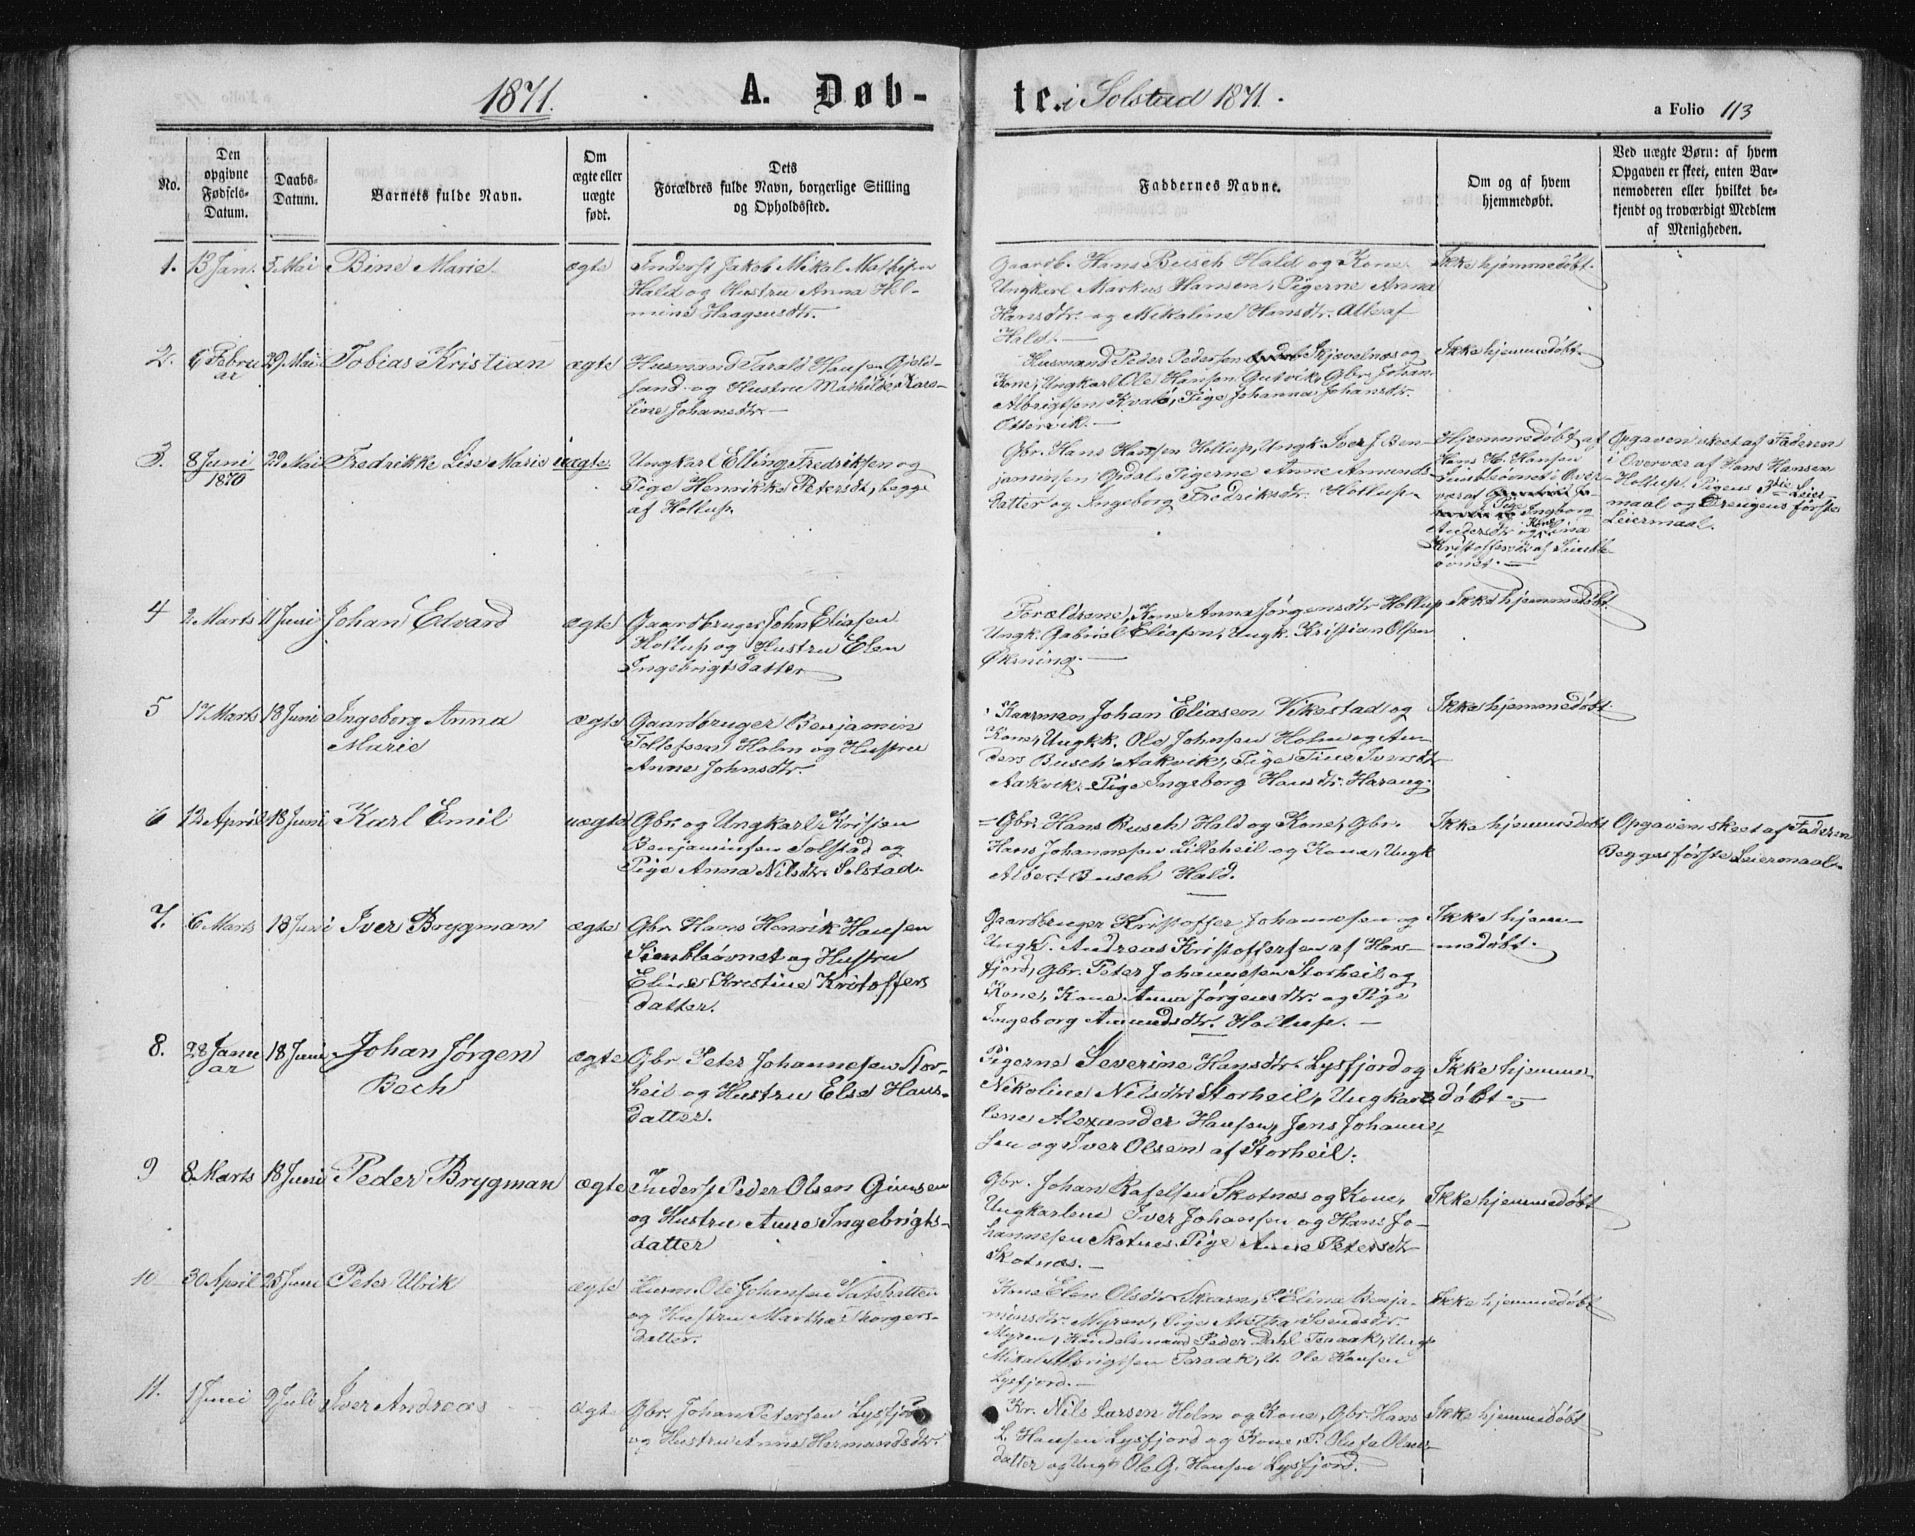 1871. A. Døb-
te. i Solstad 1871.
a Folio 113
No.
Den opgivne Fødsels-Datum.
Daabs-Datum.
Barnets fulde Navn.
Om ægte eller uægte født.
Dets Forældres fulde Navn, borgerlige Stilling og Opholdssted.
Faddernes Navne.
Om og af hvem hjemmedøbt.
Ved uægte Børn: af hvem Opgaven er skeet, enten Barnemoderen eller hvilket bekjendt og troværdigt Medlem af Menigheden.
1. 13 Jan. 5 Mai Bine Marie ægte
Inderst Jakob Mikal Mathisen
Hald og Hustru Anna Hel-
mine Haagensdtr.
Gaardb. Hans Busch Hald og Kone
Ungkarl Markus Hansen, Pigerne Anna
Hansdtr. og Nikoline Hansdtr. Alle af
Hald.
Ikke hjemmedøbt.
2. 6 Febru
ar 29 Mai Tobias Kristian ægte
Husmand Tarald Hansen Gjeld-
sand og Hustru Mathilde Karo-
line Johansdtr.
Husmand Peder Pedersen Skjevelnæs og
Kone, Ungkarl Ole Hansen Gutvik, Gbr. Johan
Albrigtsen Kvalø, Pige Johanna Johansdtr.
Ottervik.
Ikke hjemmedøbt.
3. 8 Juni
1870 29 Mai Fredrikke Lise Marie uægte
Ungkarl Elling Fredriksen og
Pige Henrikke Petersdt, begge
af Hollup
Gbr. Hans Hansen Hollup, Ungk. Iver J. Ben-
jaminsen Opdal, Pigerne Anne Amunds-
datter og Ingeborg Fredriksdtr. Hollup
Hjemmedøbt af
Hans H. Hansen
Simlesøvnet i Over-
vær af
Pige Ingborg
Andersdtr og Kone Elina
Kristoffersdtr af Simle-
søvnet.
Opgaven skeet af Faderen
i Overvær af Hans Hansen
Hollup. Pigens 3die Leier-
maal og Drengens første
Leiermaal.
4 2 Marts 11 Juni Johan Edvard ægte
Gaardbruger John Eliasen
Hollup og Hustru Elen
Ingebrigtsdatter
Forældrene, Kone Anna Jørgensdtr Hollup
Ungk. Gabriel Eliasen, Ungk. Kristian Olsen
Øksning.
Ikke hjemmedøbt
5 17 Marts 18 Juni Ingeborg Anna
Marie ægte
Gaardbruger Benjamin
Tollefsen Holm og Hustru
Anne Johnsdtr.
Kaarman Johan Eliasen Vikestad og
Kone, Ungkk. Ole Johnsen Holm og An-
ders Busch Aakvik, Pige Tine Iversdtr
Aakvik. Pige Ingeborg Hansdtr. Harang.
Ikke hjemmedøbt.
6 12 April 18 Juni Karl Emil uægte
Gbr. og Ungkarl Kristen
Benjaminsen Solstad og
Pige Anna Nilsdtr. Solstad.
Gbr. Hans Busch Hald og Kone, Gbr.
Hans Johannesen Lilleheil og Kone, Ungk
Albert Busch Hald.
Ikke hjemmedøbt
Opgaven skeet af Faderen
Begges første Leiermaal.
7. 6 Marts 18 Juni Iver Brygman ægte
Gbr Hans Henrik Hansen
Simlesøvnet og Hustru
Eline Kristine Kristoffers
datter.
Gaardbruger Kristoffer Johannesen og
Ungk. Andreas Kristoffersen af Hors-
fjord, Gbr. Peter Johannesen Storheil og
Kone, Kone Anna Jørgensdtr. og Pige
Ingeborg Amundsdtr. Hollup.
Ikke hjem-
medøbt.
8. 28 Janu
ar 18 Juni Johan Jørgen
Bech ægte
Gbr Peter Johannesen Stor-
heil og Hustru Else Hans-
datter.
Pigerne Severine Hansdtr. Lysfjord og
Nikoline Nilsdtr Storheil, Ungkar-
lene Alexander Hansen, Jens Johanne-
sen og Iver Olsen af Storheil.
Ikke hjemme-
døbt.
9 8 Marts 18 Juni Peder Brygman ægte
Inderst Peder Olsen Gimsen
og Hustru Anne Ingebrigts-
datter
Gbr. Johan Kaselsen Skotnæs og Kone,
Ungkarlene Iver Johansen og Hans Jo-
hannesen Skotnes. Pige Anne Petersdtr
Skotnæs.
Ikke hjemmedøbt
10 30 April 25 Juni Peter Ulrik ægte
Husm. Ole Johansen Vatshatten
og Hustru Martha Thorgers-
datter.
Kone Elen Olsdtr Skarn, P. Elina Benja-
minsdtr. Myren, Pige Svendsdtr.
Myren, Handelsmand Peder Dahl Teraak, Ung.
Mikal Albrigtsen Teraak, U. Ole Hansen
Lysfjord.
Ikke hjemmedøbt
11. 1 Juni 9 Juli Iver Andreas ægte
Gbr. Johan Petersen Lysfjord
og Hustru Anne Hermandsdtr.
Kr. Nils Larsen Holm og Kone, Gbr. Hans
L. Hansen Lysfjord og Kone, P. Oleta Olaus-
datter og Ungk Ole G. Hansen Lysfjord.
Ikke hjemmedøbt